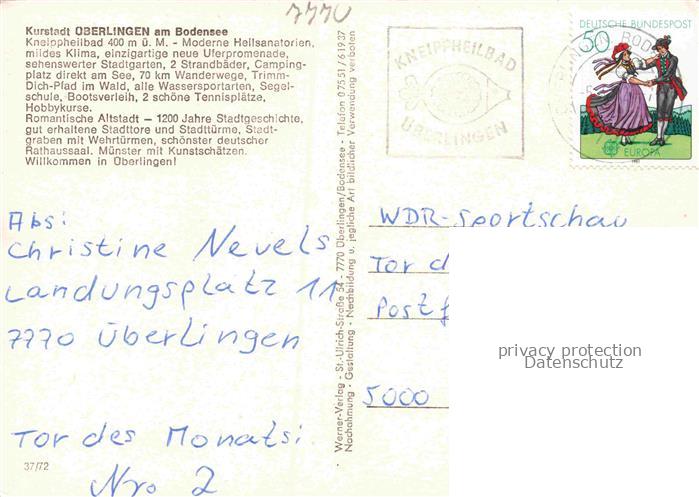 7770
Kurstadt ÜBERLINGEN am Bodensee
Kneippheilbad 400 m ü. M. - Moderne Heilsanatorien,
mildes Klima, einzigartige neue Uferpromenade,
sehenswerter Stadtgarten, 2 Strandbäder, Camping-
platz direkt am See, 70 km Wanderwege, Trimm-
Dich-Pfad im Wald, alle Wassersportarten, Segel-
schule, Bootsverleih, 2 schöne Tennisplätze,
Hobbykurse.
Romantische Altstadt — 1200 Jahre Stadtgeschichte,
gut erhaltene Stadttore und Stadttürme, Stadt-
graben mit Wehrtürmen, schönster deutscher
Rathaussaal. Münster mit Kunstschätzen.
Willkommen in Überlingen!
Abs:
Christine Nevels
Landungsplatz 11
7770 Überlingen
Tor des Monats:
Nro 2
37/72
Werner-Verlag - St.-Ulrich-Straße 54 - 7770 Überlingen/Bodensee - Telefon 07551/61937
Nachahmung - Gestaltung - Nachbildung u. jegliche Art bildlicher Verwendung verboten
KNEIPPHEILBAD
ÜBERLINGEN
DEUTSCHE BUNDESPOST
50
EUROPA
1981
WDR-Sportschau
Tor d
Postf
5000
privacy protection
Datenschutz